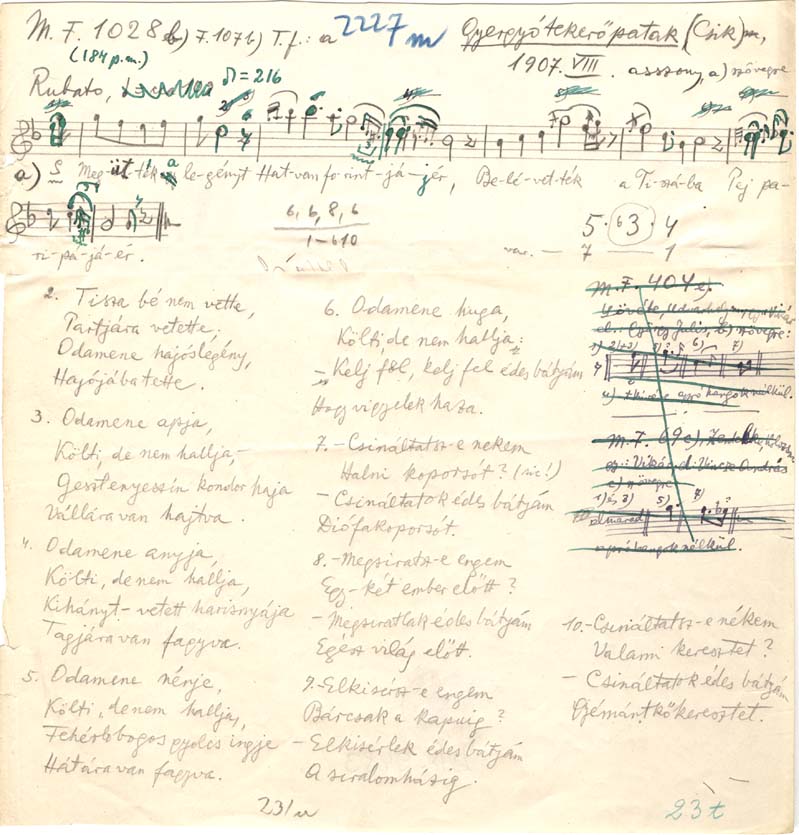 M. F. 1028 b) 7.107 b) T.f.: a 2227 m Gyergyótekerőpatak (Csik) m,
(184 p.m.) 1907. VIII. asszony, a) szövegre
Rubato, ♪ = 216
a) S Meg-üt-ték a le-gényt Hat-van fo-rint-já-jér, Be-lé-vet-ték a Ti-szá-ba Pej pa-
ri-pá-já-ér.
6, 6, 8, 6
1–610
5 · 63 · 4
var. — 7 — 1
2. Tisza bé nem vette,
Partjára vetette,
Odamene hajóslegény,
Hajójába tette.
3. Odamene apja,
Költi, de nem hallja,-
Gesztenyeszín kondor haja
Vállára van hajtva.
4. Odamene anyja,
Költi, de nem hallja,
Kihányt-vetett harisnyája
Tagjára van fagyva.
5. Odamene nénje,
Költi, de nem hallja,
Fehérlobogos gyolcs ingje
Hátára van fagyva.
6. Odamene huga,
Költi, de nem hallja:
– Kelj fel, kelj fel édes bátyám
Hogy vigyelek haza.
7. – Csináltatsz-e nekem
Halni koporsót? (sic!)
– Csináltatok édes bátyám
Diófakoporsót.
8. – Megsiratsz-e engem
Egy-két ember előtt?
– Megsiratlak édes bátyám
Egész világ előtt.
9. – Elkisérsz-e engem
Bárcsak a kapuig?
– Elkisérlek édes bátyám
A siralomházig.
M. F. 404 c)
szövegre:
apró hangok nélkül.
M. F. 69 c),
Vikár
c) szövegre
1) 2) 3) 5) 7)
apró hangok nélkül.
10. – Csináltatsz-e nékem
Valami keresztet?
– Csináltatok édes bátyám
Gyémántkőkeresztet.
23/u
23 t